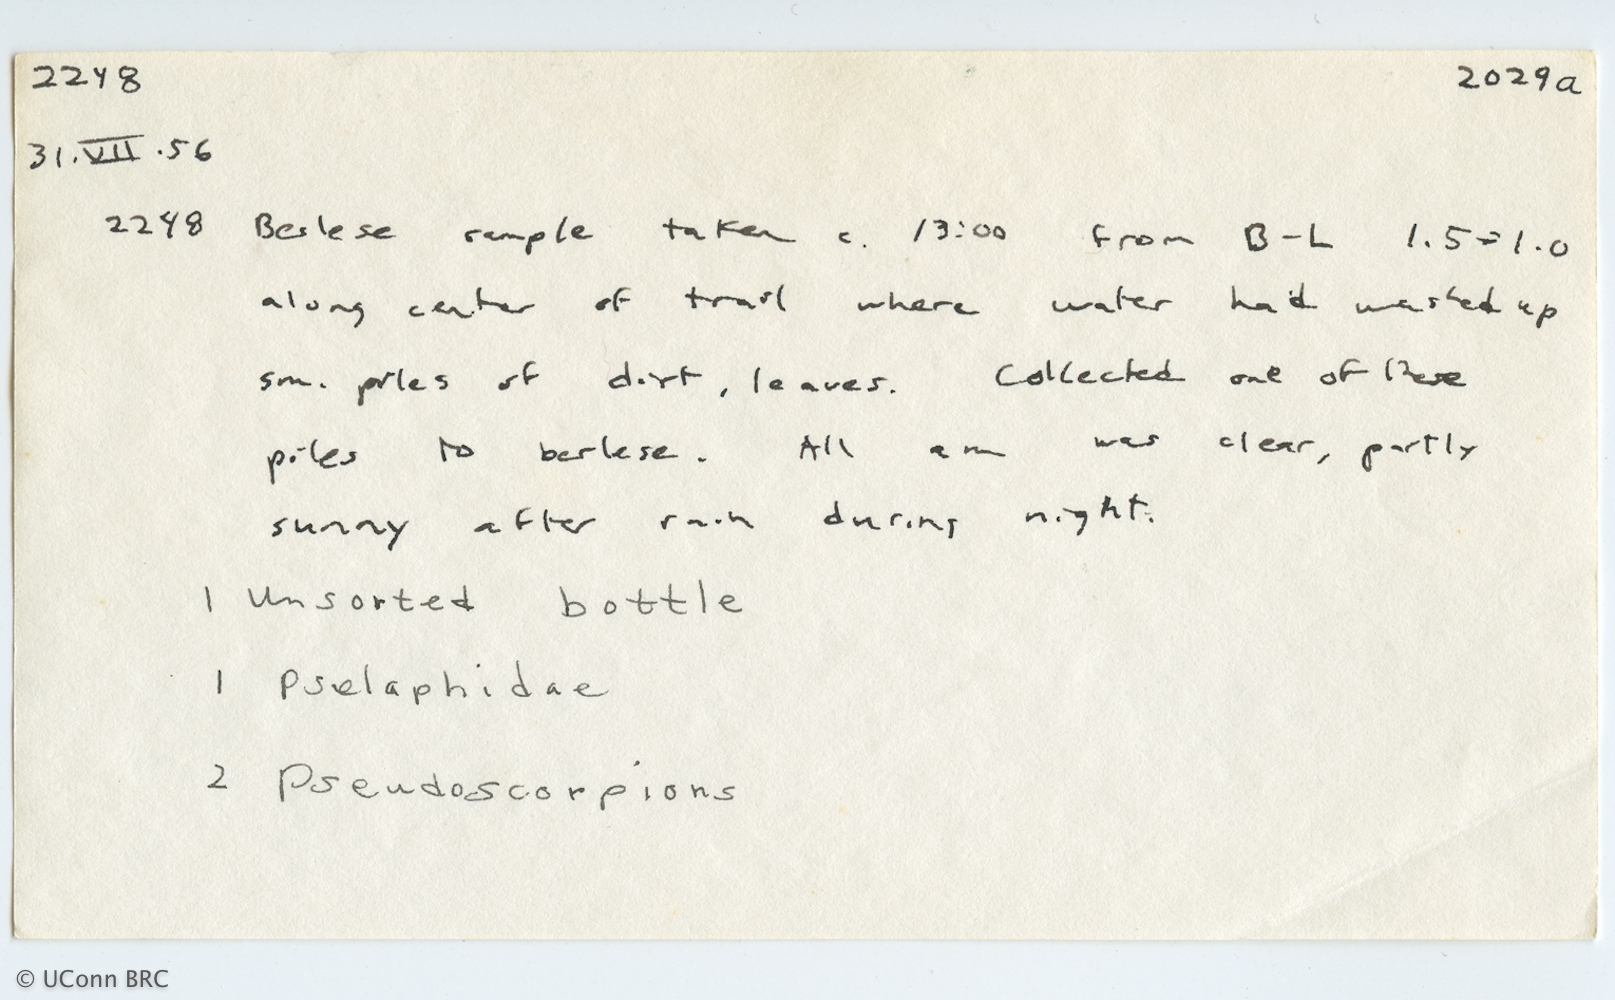 2248 2029a
31.VII.56
2248 Berlese sample taken c. 13:00 from B-L 1.5=1.0
along center of trail where water had washed up
sm. piles of dirt, leaves. Collected one of these
piles to berlese. All am was clear, partly
sunny after rain during night.
1 Unsorted bottle
1 Pselaphidae
2 Pseudoscorpions
© UConn BRC